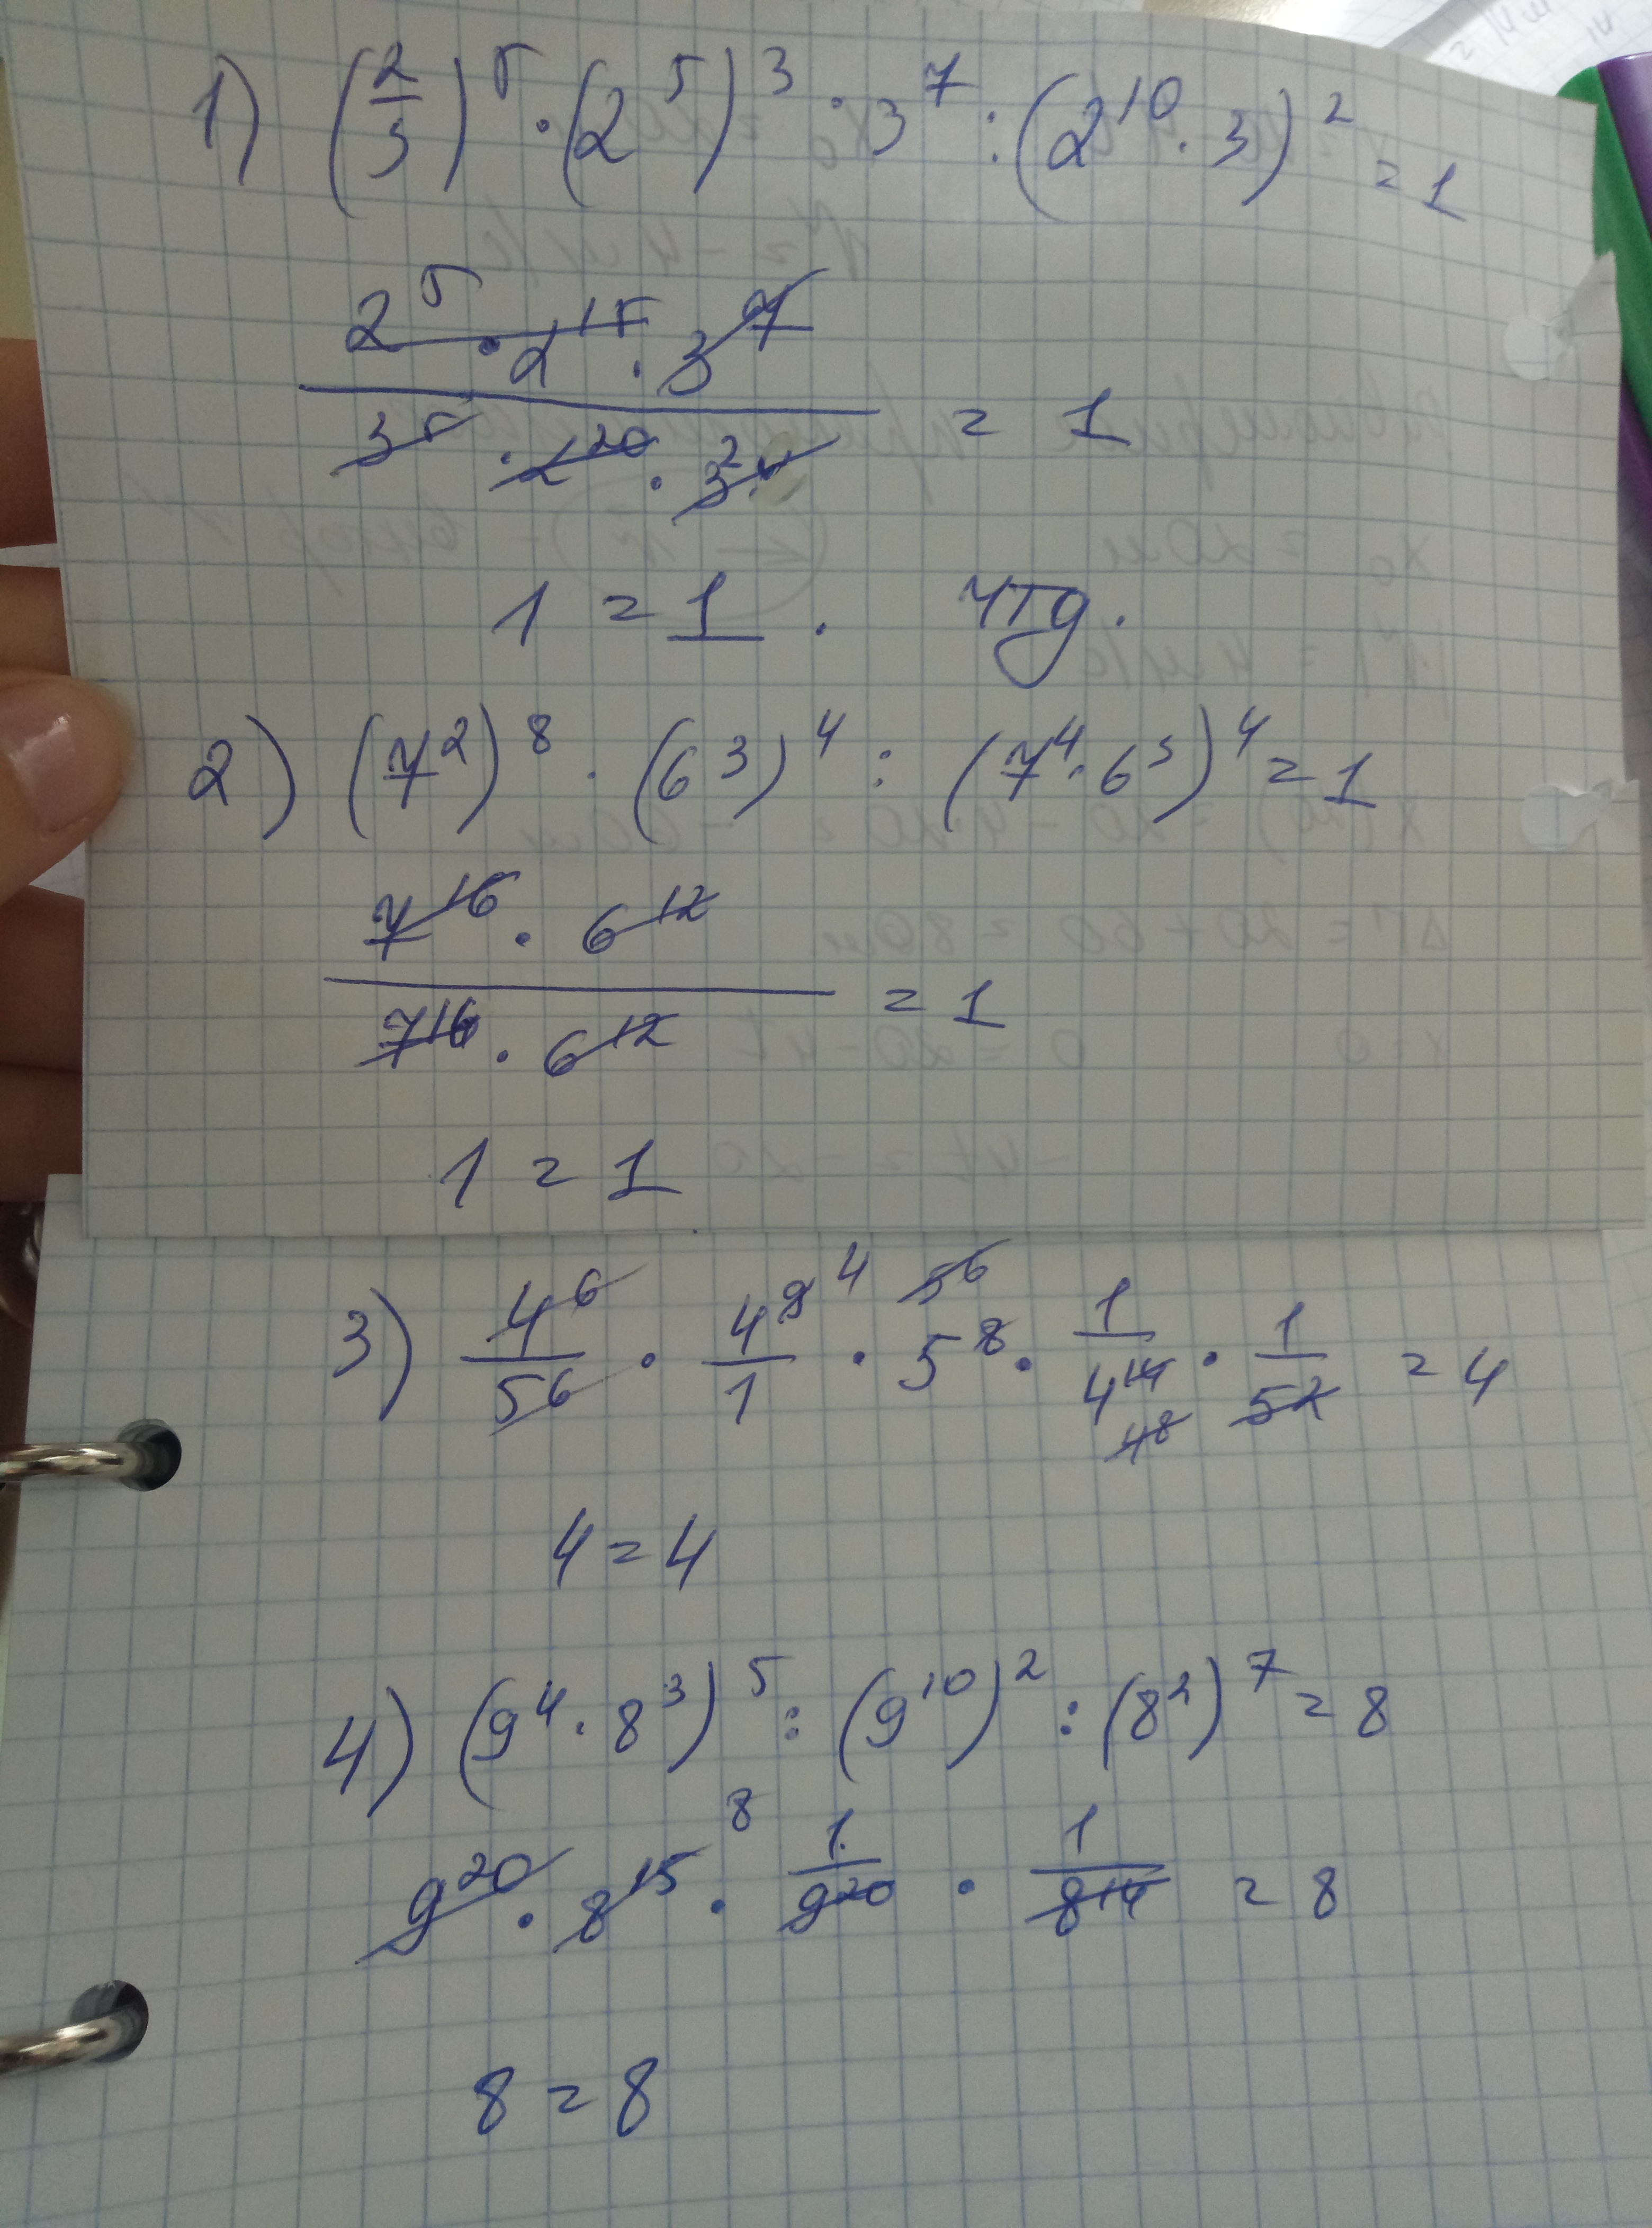 1) (2/3)^5 · (2^5)^3 · 3^7 : (2^10 · 3)^2 = 1
2^5 · 2^15 · 3^7 / 3^5 · 2^20 · 3^2 = 1
1 = 1 . чтд.
2) (7^2)^8 · (6^3)^4 : (7^4 · 6^3)^4 = 1
7^16 · 6^12 / 7^16 · 6^12 = 1
1 = 1
3) 4^6/5^6 · 4^9/1 4 5^6 · 5^8 · 1/4^14 4^8 · 1/5^2 = 4
4 = 4
4) (9^4 · 8^3)^5 : (9^10)^2 : (8^2)^7 = 8
9^20 · 8^15 8 · 1/9^20 · 1/8^14 = 8
8 = 8